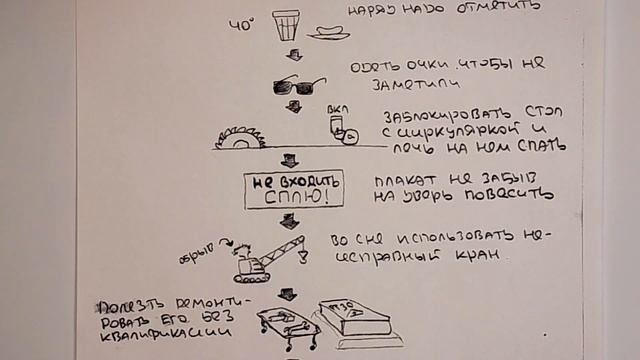 НАРЯД НАДО ОТМЕТИТЬ
40°
ОДЕТЬ ОЧКИ ЧТОБЫ НЕ
ЗАМЕТИЛИ
ВКЛ
ЗАБЛОКИРОВАТЬ СТОЛ
С ЦИРКУЛЯРКОЙ И
ЛЕЧЬ НА НЕМ СПАТЬ
НЕ ВХОДИТЬ
СПЛЮ!
ПЛАКАТ НЕ ЗАБЫВ
НА ДВЕРЬ ПОВЕСИТЬ
ОБРЫВ
ВО СНЕ ИСПОЛЬЗОВАТЬ НЕ-
ИСПРАВНЫЙ КРАН
ПОЛЕЗТЬ РЕМОНТИ-
РОВАТЬ ЕГО БЕЗ
КВАЛИФИКАЦИИ